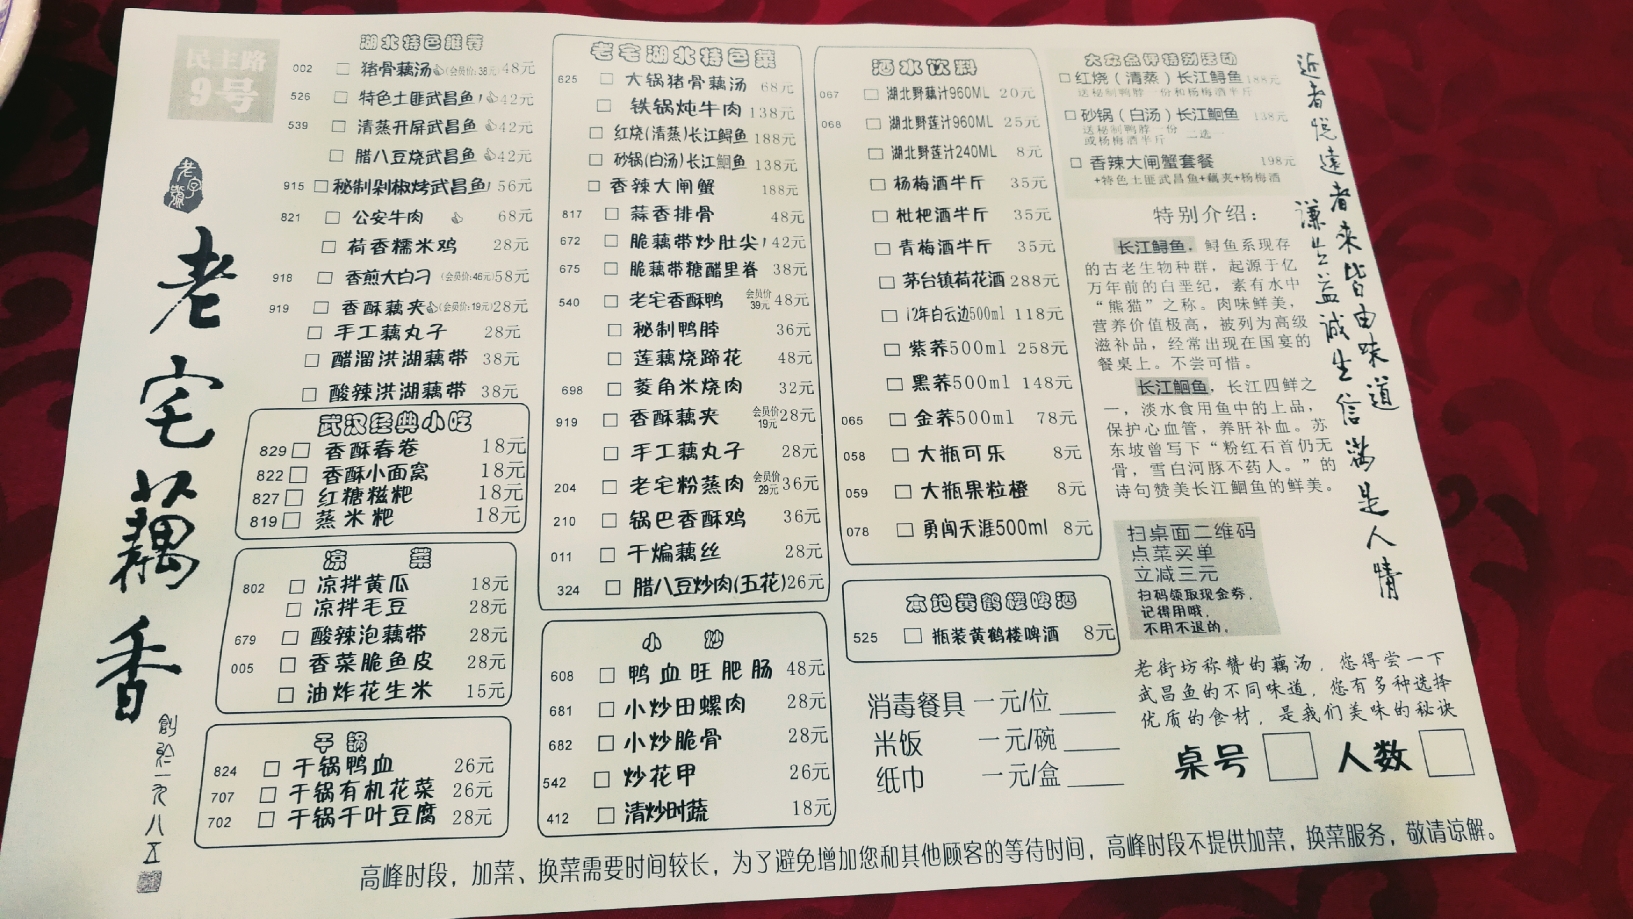 民主路
9号
老字号
老宅藕香
創於一九八五
湖北特色推荐
002 猪骨藕汤(会员价:38元)48元
526 特色土匪武昌鱼 42元
539 清蒸开屏武昌鱼 42元
腊八豆烧武昌鱼 42元
915 秘制剁椒烤武昌鱼 56元
821 公安牛肉 68元
荷香糯米鸡 28元
918 香煎大白刁(会员价:46元)58元
919 香酥藕夹(会员价:19元)28元
手工藕丸子 28元
醋溜洪湖藕带 38元
酸辣洪湖藕带 38元
武汉经典小吃
829 香酥春卷 18元
822 香酥小面窝 18元
827 红糖糍粑 18元
819 蒸米粑 18元
凉菜
802 凉拌黄瓜 18元
凉拌毛豆 28元
679 酸辣泡藕带 28元
005 香菜脆鱼皮 28元
油炸花生米 15元
干锅
824 干锅鸭血 26元
707 干锅有机花菜 26元
702 干锅千叶豆腐 28元
老宅湖北特色菜
625 大锅猪骨藕汤 68元
铁锅炖牛肉 138元
红烧(清蒸)长江鲟鱼 188元
砂锅(白汤)长江鮰鱼 138元
香辣大闸蟹 188元
817 蒜香排骨 48元
672 脆藕带炒肚尖 42元
675 脆藕带糖醋里脊 38元
540 老宅香酥鸭 会员价39元 48元
秘制鸭脖 36元
莲藕烧蹄花 48元
698 菱角米烧肉 32元
919 香酥藕夹 会员价19元 28元
手工藕丸子 28元
204 老宅粉蒸肉 会员价29元 36元
210 锅巴香酥鸡 36元
011 干煸藕丝 28元
324 腊八豆炒肉(五花)26元
小炒
608 鸭血旺肥肠 48元
681 小炒田螺肉 28元
682 小炒脆骨 28元
542 炒花甲 26元
412 清炒时蔬 18元
酒水饮料
067 湖北野藕汁960ML 20元
068 湖北野莲汁960ML 25元
湖北野莲汁240ML 8元
杨梅酒半斤 35元
枇杷酒半斤 35元
青梅酒半斤 35元
茅台镇荷花酒 288元
12年白云边500ml 118元
紫荞500ml 258元
黑荞500ml 148元
065 金荞500ml 78元
058 大瓶可乐 8元
059 大瓶果粒橙 8元
078 勇闯天涯500ml 8元
本地黄鹤楼啤酒
525 瓶装黄鹤楼啤酒 8元
消毒餐具 一元/位
米饭 一元/碗
纸巾 一元/盒
大众点评特别活动
红烧(清蒸)长江鲟鱼 188元
送秘制鸭脖一份和杨梅酒半斤
砂锅(白汤)长江鮰鱼 138元
送秘制鸭脖一份
或杨梅酒半斤 二选一
香辣大闸蟹套餐 198元
+特色土匪武昌鱼+藕夹+杨梅酒
特别介绍:
长江鲟鱼,鲟鱼系现存
的古老生物种群,起源于亿
万年前的白垩纪,素有水中
“熊猫”之称。肉味鲜美,
营养价值极高,被列为高级
滋补品,经常出现在国宴的
餐桌上。不尝可惜。
长江鮰鱼,长江四鲜之
一,淡水食用鱼中的上品,
保护心血管,养肝补血。苏
东坡曾写下“粉红石首仍无
骨,雪白河豚不药人。”的
诗句赞美长江鮰鱼的鲜美。
扫桌面二维码
点菜买单
立减三元
扫码领取现金券,
记得用哦,
不用不退的。
近者悦远者来皆由味道
谦生益诚生信满是人情
老街坊称赞的藕汤,您得尝一下
武昌鱼的不同味道,您有多种选择
优质的食材,是我们美味的秘诀
桌号 人数
高峰时段,加菜、换菜需要时间较长,为了避免增加您和其他顾客的等待时间,高峰时段不提供加菜,换菜服务,敬请谅解。